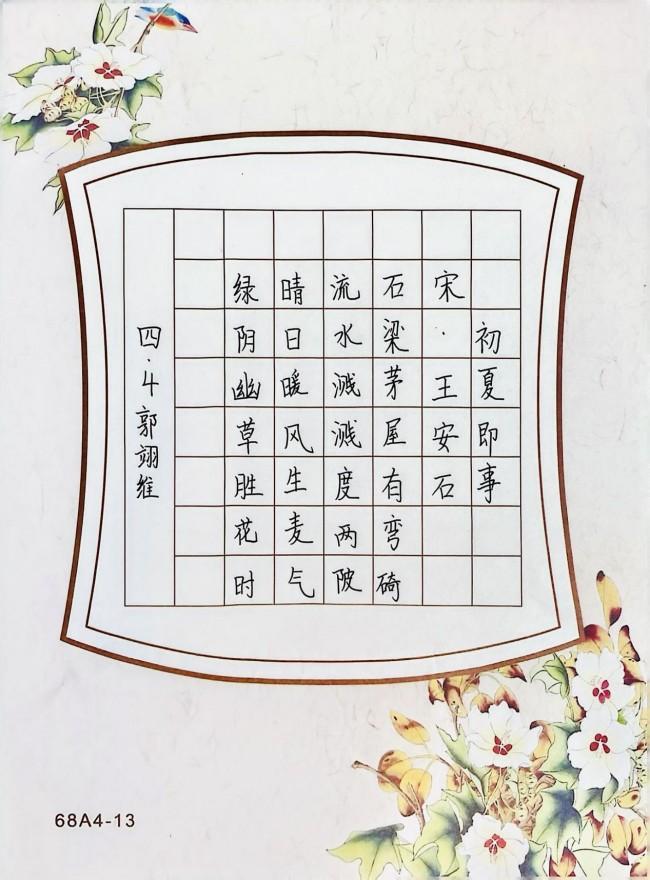 初夏即事
宋·王安石
石梁茅屋有弯碕
流水溅溅度两陂
晴日暖风生麦气
绿阴幽草胜花时
四·4郭翊维
68A4-13